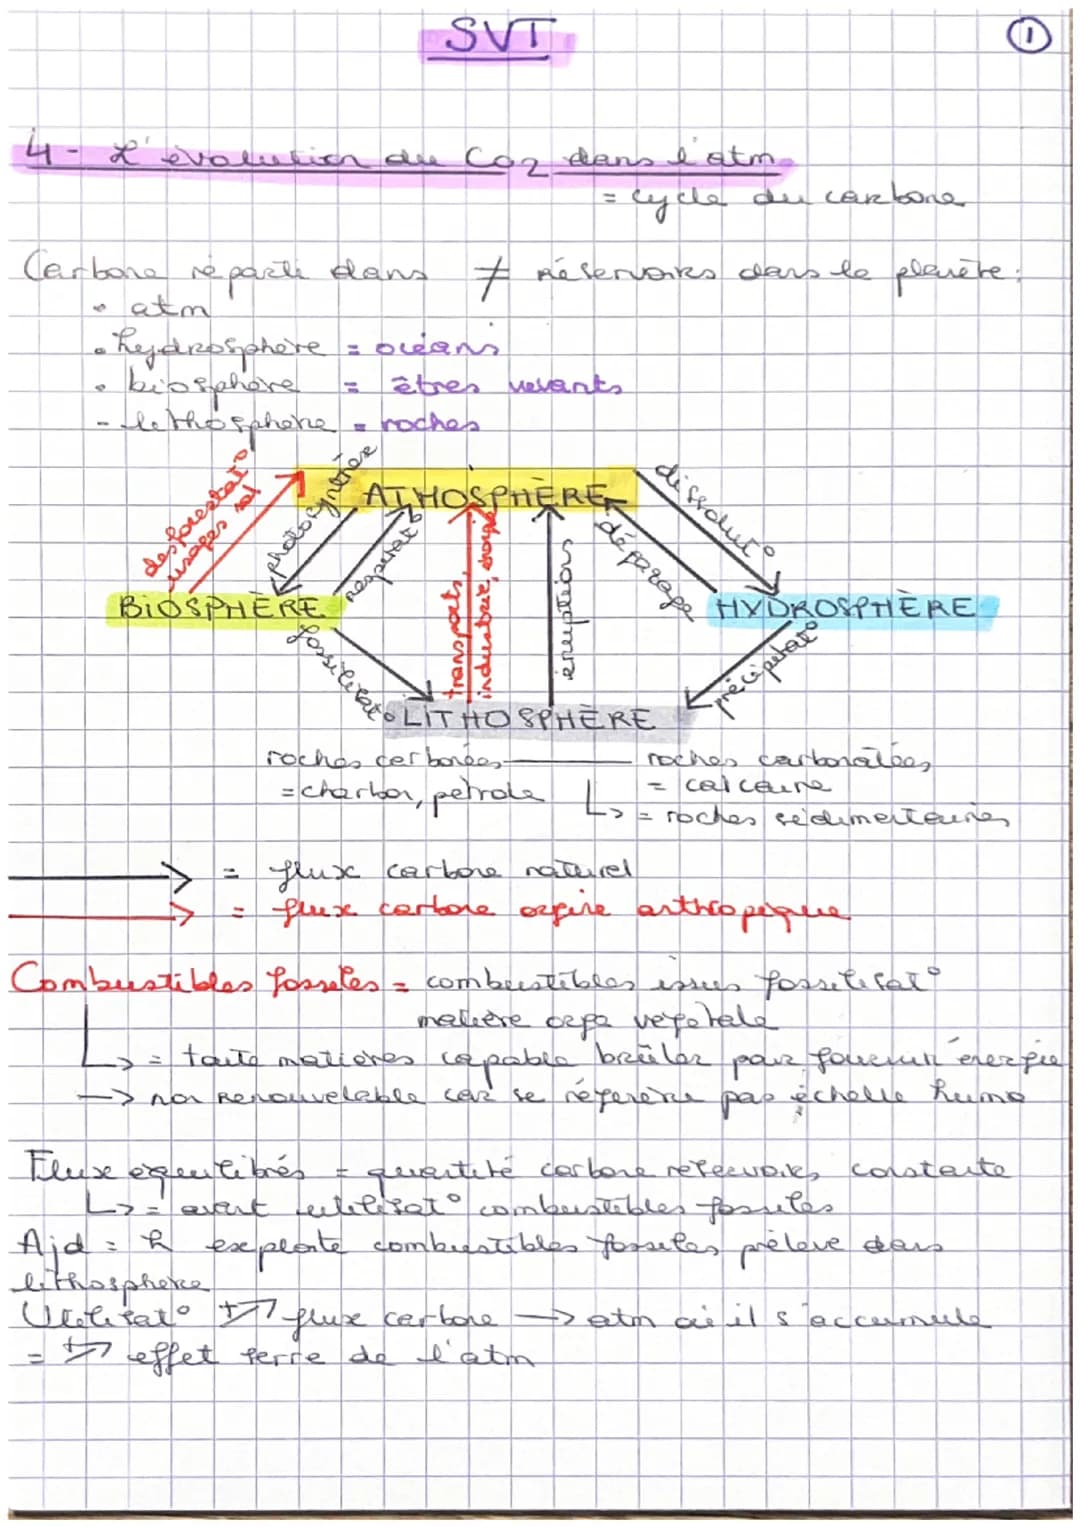 SVT
1
4 - L'évolution du CO2 dans l'atm
= cycle du carbone
Carbone réparti dans ≠ réservoirs dans la planète :
• atm
• hydrosphère = océans
• biosphère = êtres vivants
- lithosphère = roches
desforestat°
usages sol
photosynthèse
respirat°
ATMOSPHÈRE
dissolut°
dégazage
BIOSPHÈRE
HYDROSPHÈRE
fossilisat°
transports,
industrie, énergie
éruptions
précipitat°
LITHOSPHÈRE
roches carbonées
roches carbonatées
= charbon, pétrole
= calcaire
↳ = roches sédimentaires
→ = flux carbone naturel
→ = flux carbone origine anthropique
Combustibles fossiles = combustibles issus fossilisat°
matière orga végétale
↳ = toute matières capable brûler pour fournir énergie
→ non renouvelable car se régénère pas échelle humo
Flux équilibrés = quantité carbone réservoirs constante
↳ = avant utilisat° combustibles fossiles
Ajd = h exploite combustibles fossiles, prélève dans
lithosphère
Utilisat° +↗ flux carbone → atm où il s'accumule
= +↗ effet serre de l'atm